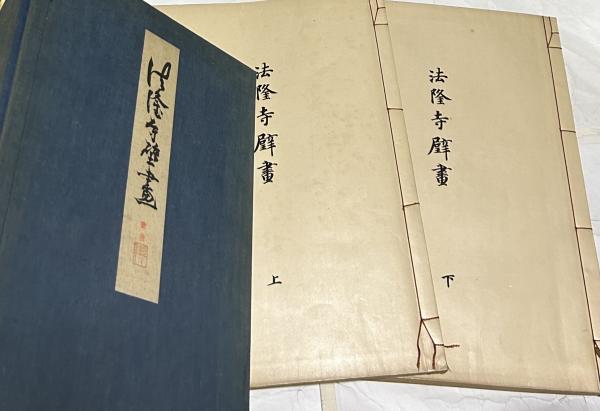 法隆寺壁畫
法隆寺壁畫
上
法隆寺壁畫
下